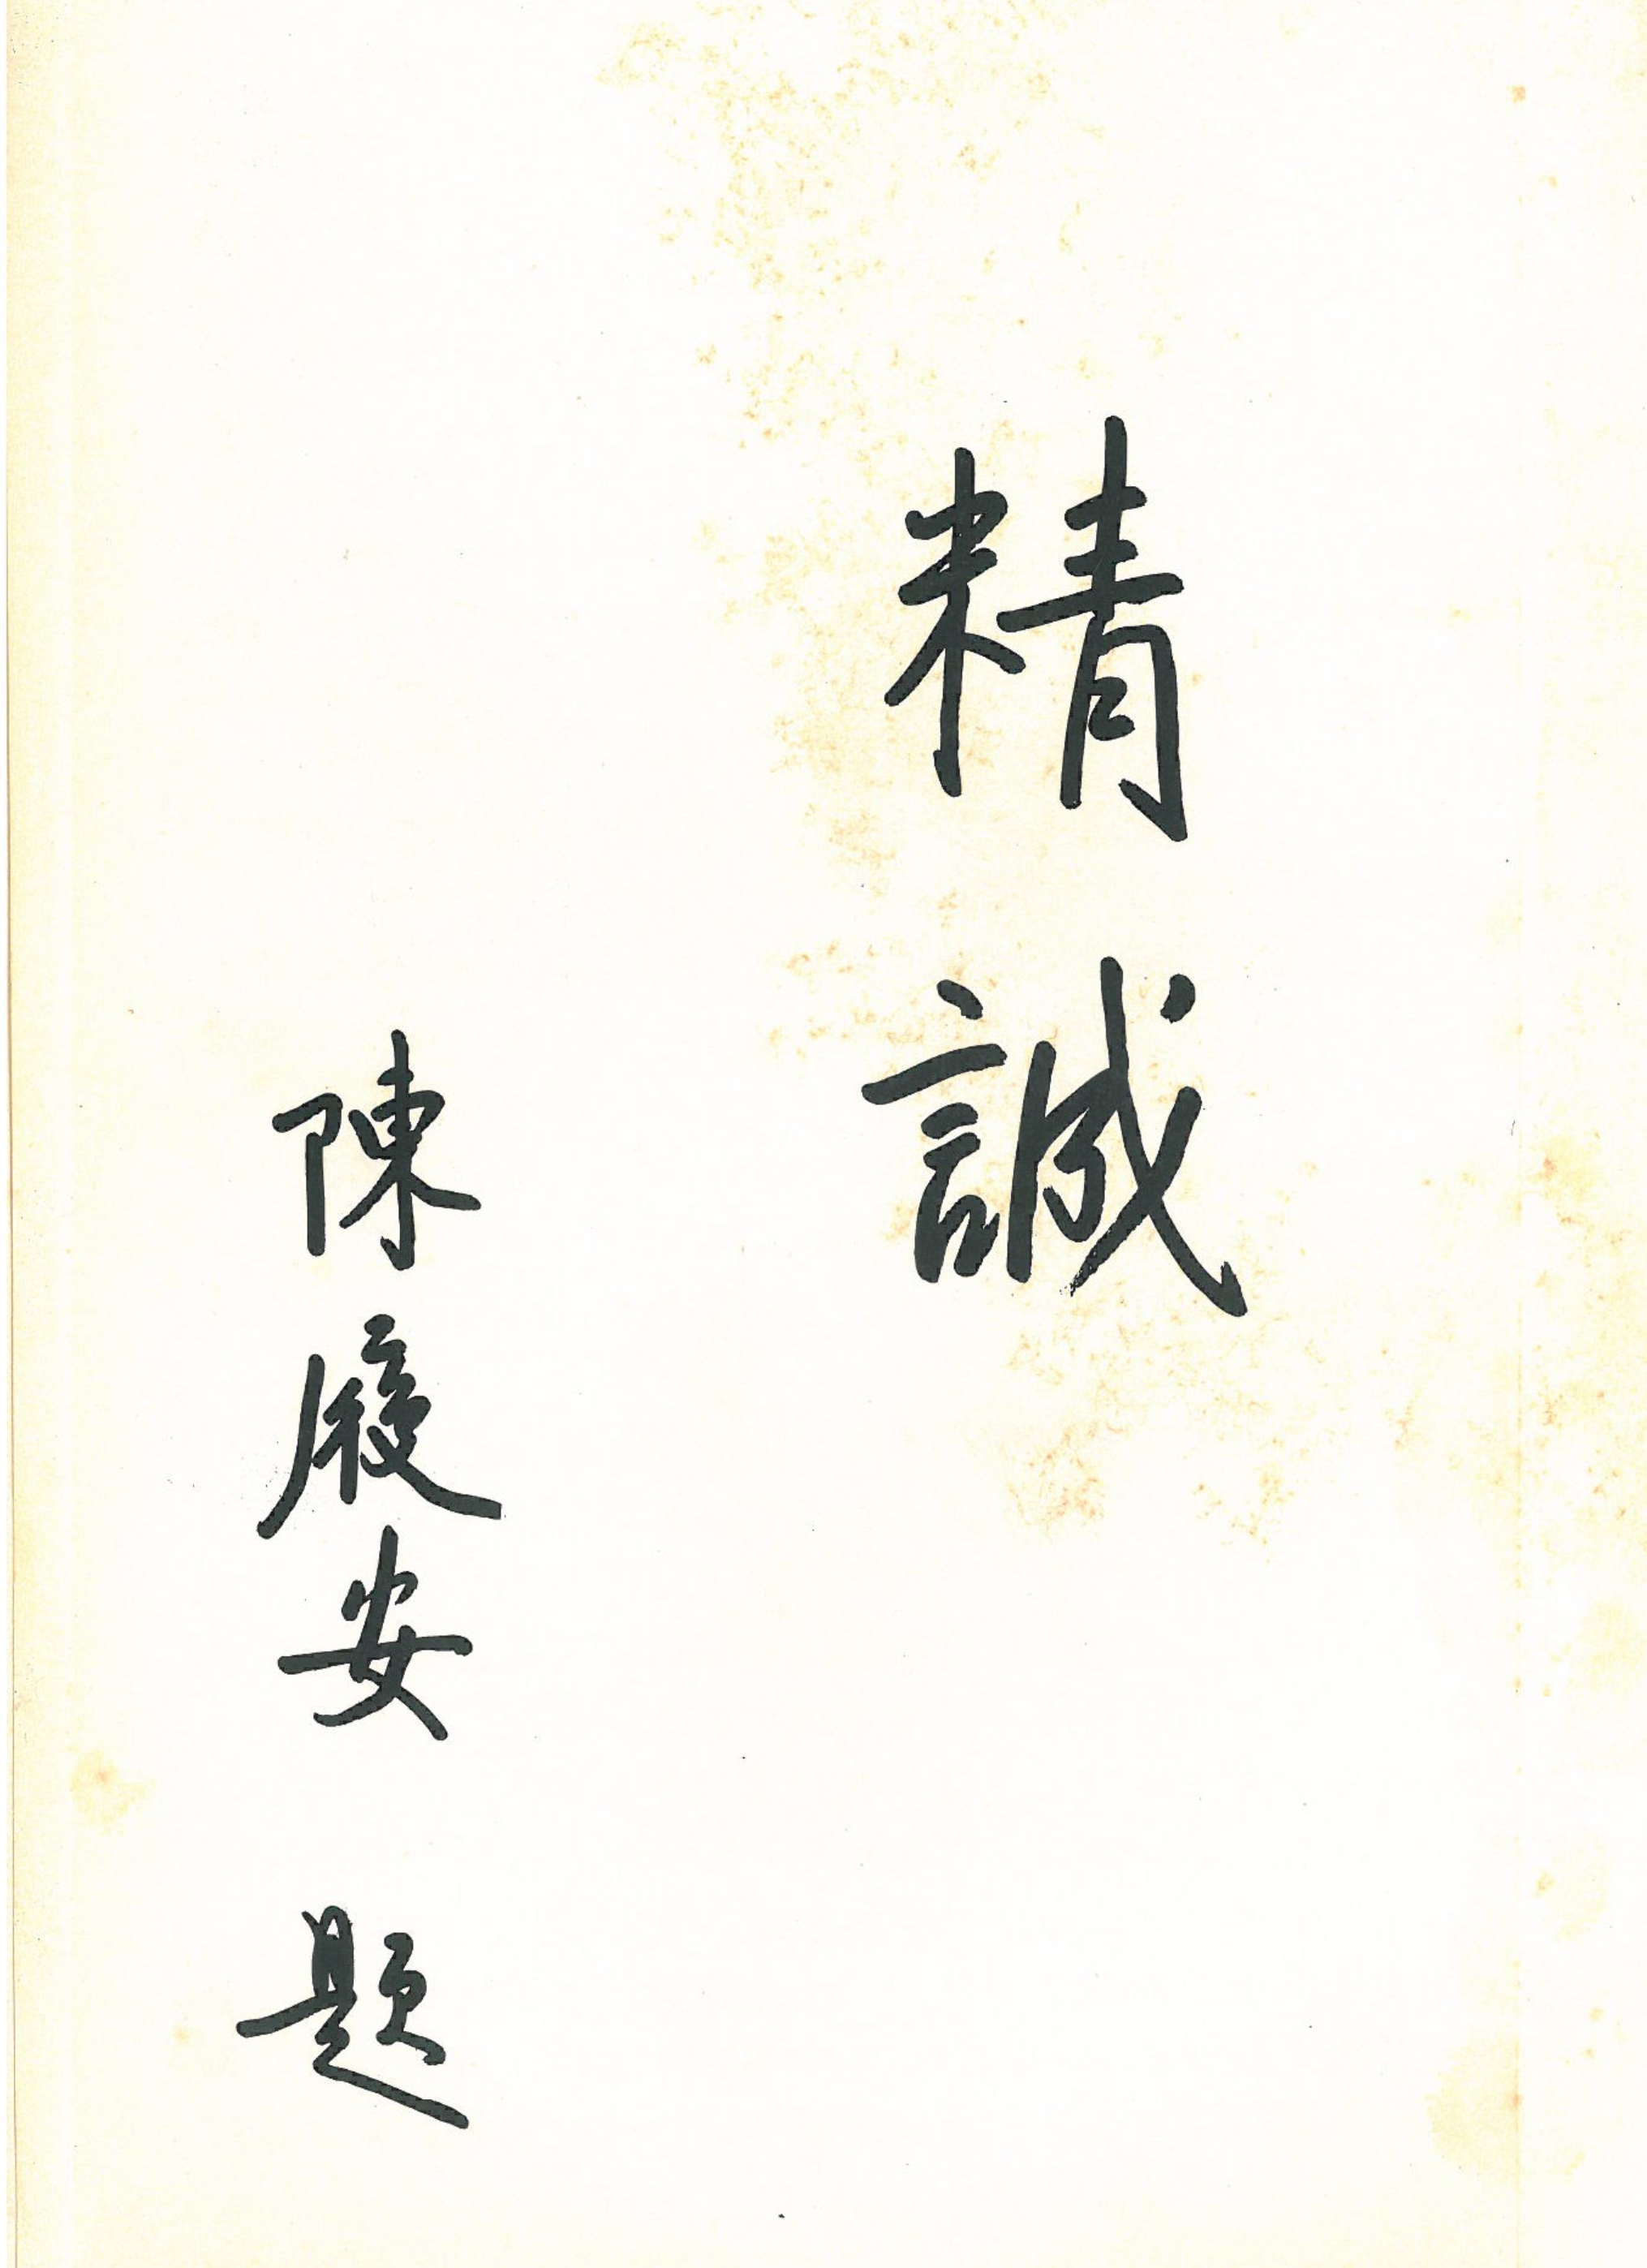 精誠
陳履安 題